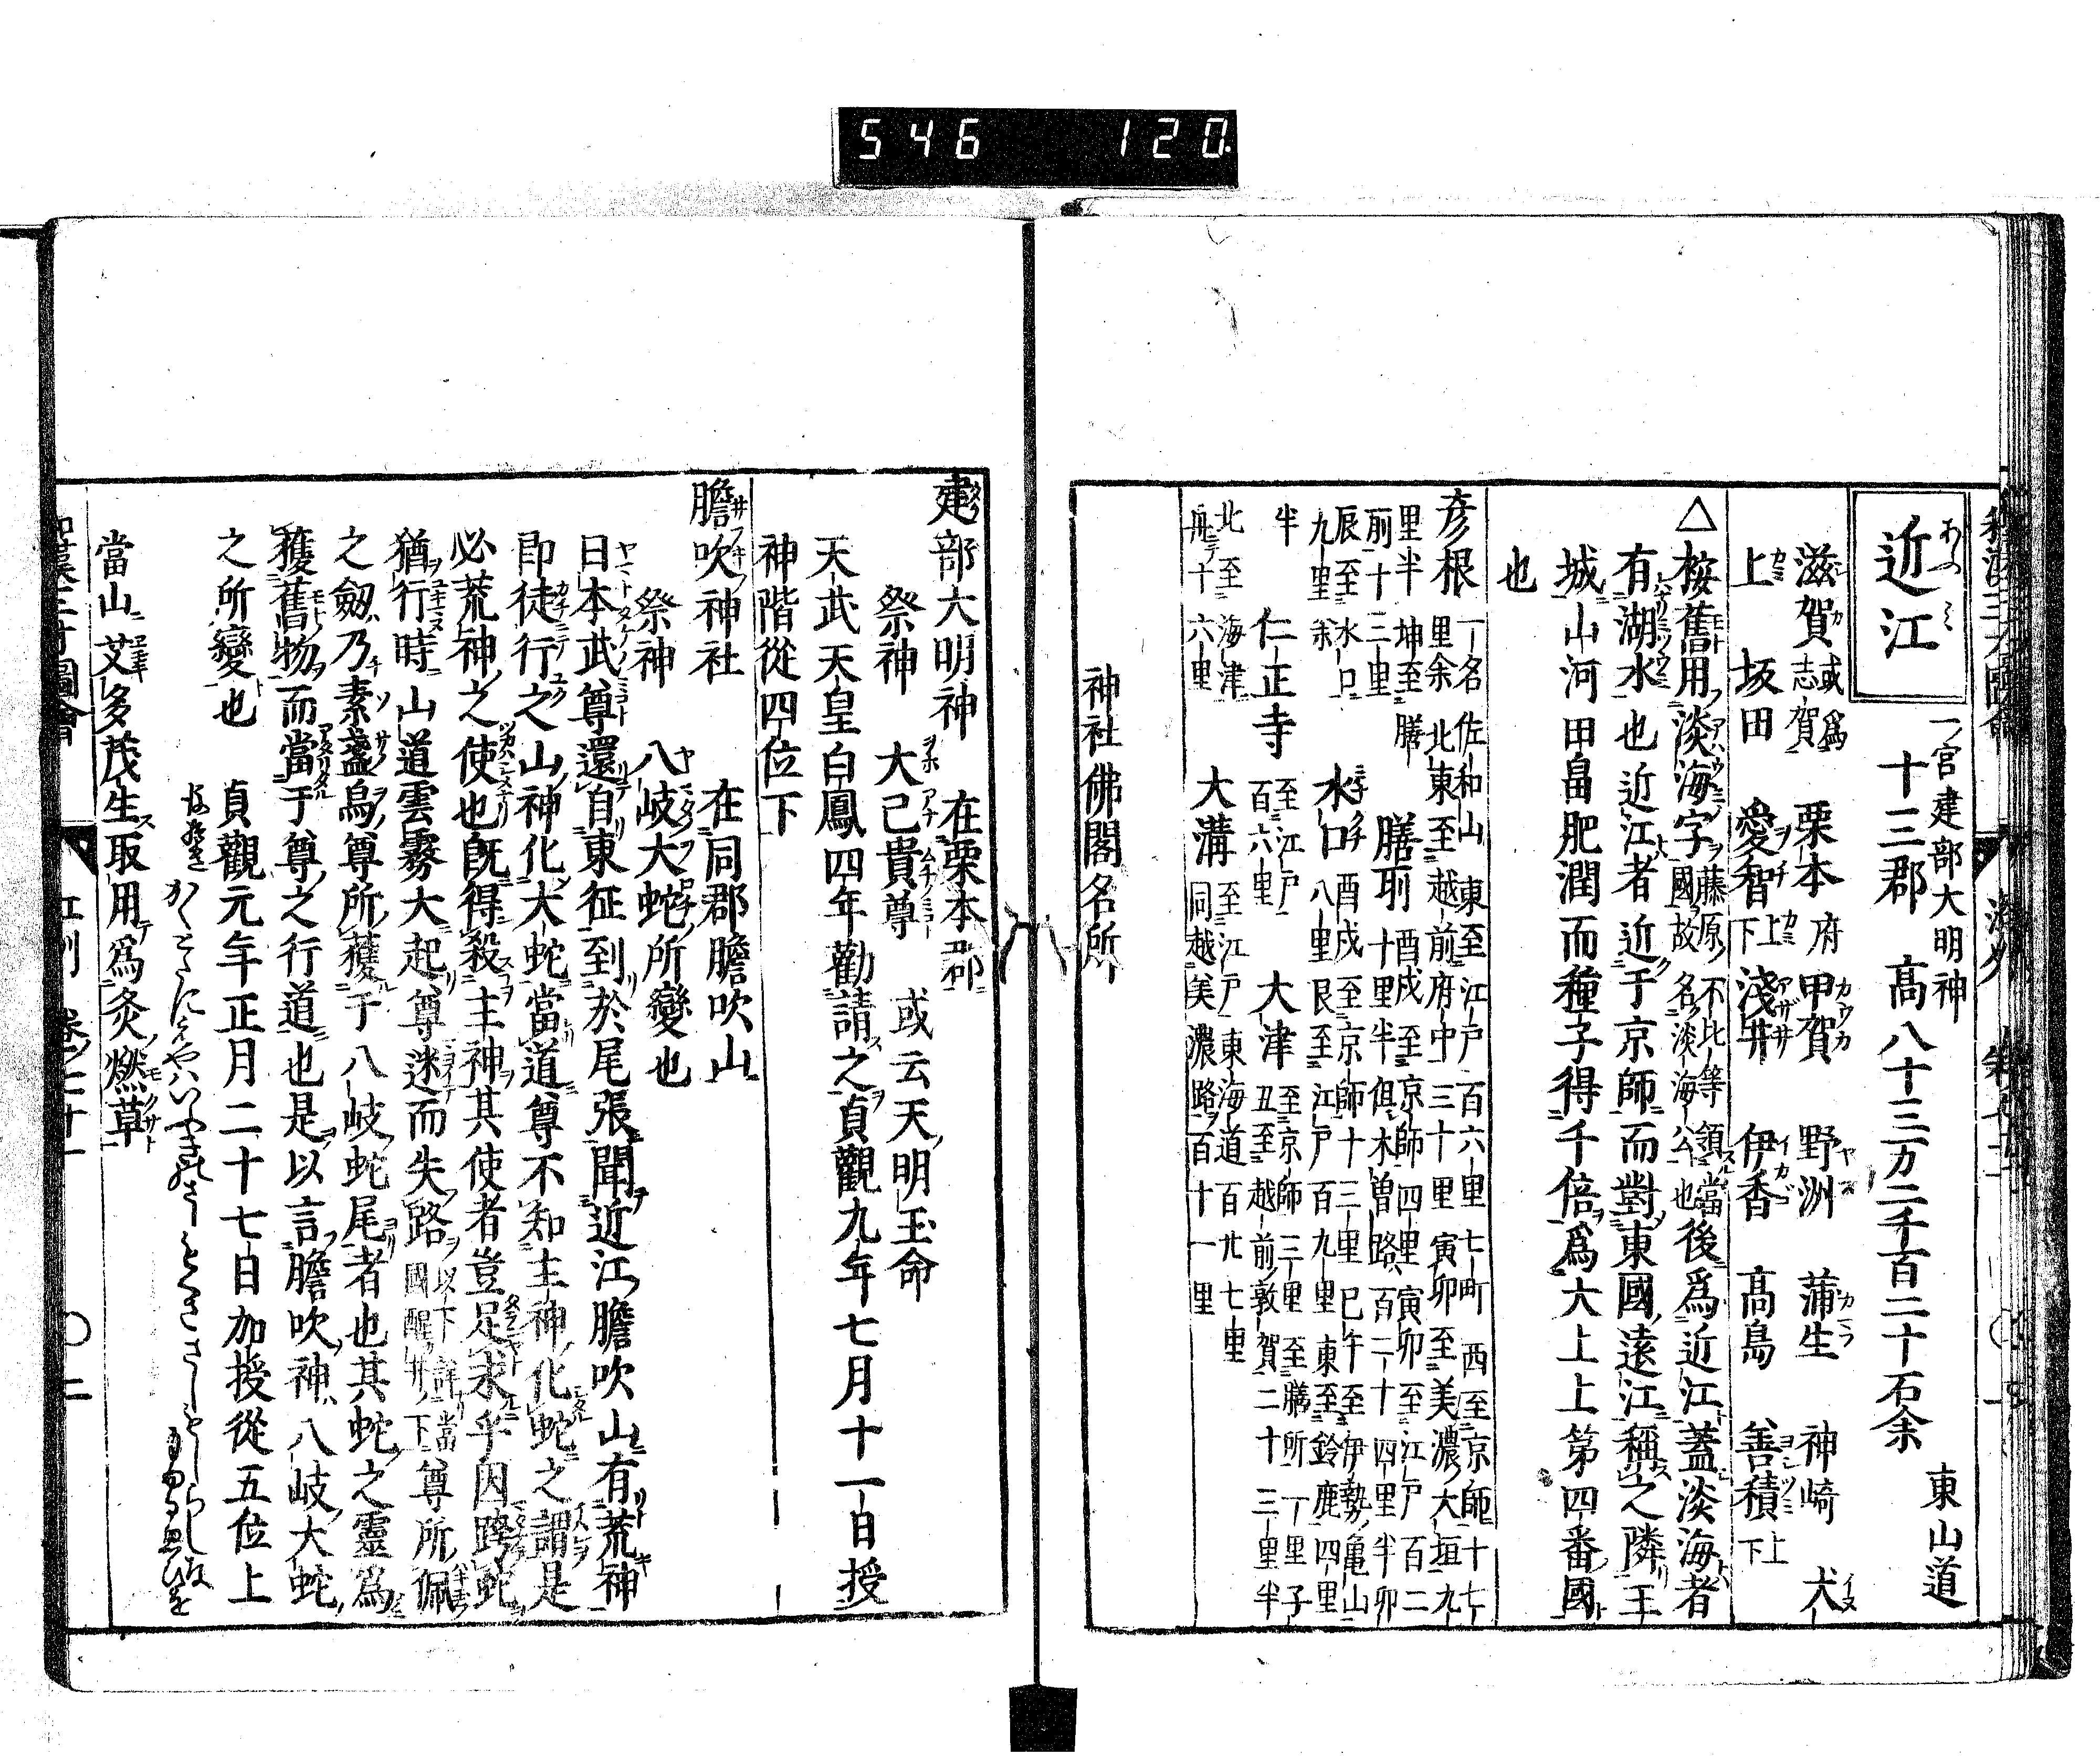 546 120
近江
あふみ
一宮建部大明神
東山道
十三郡 高八十三万二千百二十石余
滋賀 或爲志賀 栗本 府 甲賀 野洲 蒲生 神崎 犬
上 坂田 愛智 上下 淺井 伊香 高島 善積 上下
△按舊用淡海字 藤原不比等領當國故名淡海公也 後爲近江蓋淡海者
有湖水也近江者近于京師而對東國遠江稱之隣王
城山河田畠肥潤而種子得千倍爲大上上第四番國
也
彦根 一名佐和山 東至江戸百六里七町 西至京師十七
里余 北東至越前府中三十里 寅卯至美濃大垣九
里半 坤至膳
所十三里
膳所 酉戌至京師四里 寅卯至江戸百二
十里半 但木曽路百二十四里半 卯
辰至水口
九里余
水口 酉戌至京師十三里 巳午至伊勢亀山
八里 艮至江戸百九里 東至鈴鹿四里
半
仁正寺 至江戸百六里
大津 至京師三里 至膳所一里 子
丑至越前敦賀二十三里半
北至海津
舟ニテ十六里
大溝 至江戸東海道百廿七里
同越美濃路百十一里
神社佛閣名所
建部大明神 在栗本郡
祭神 大己貴尊 或云天明玉命
天武天皇白鳳四年勸請之貞觀九年七月十一日授
神階從四位下
膽吹神社 在同郡膽吹山
祭神 八岐大蛇所變也
日本武尊還自東征到於尾張聞近江膽吹山有荒神
即徒行之山神化大蛇當道尊不知主神化蛇之謂是
必荒神之使也既得殺主神其使者豈足求乎因跨蛇
猶行時山道雲霧大起尊迷而失路 以下詳當國醒井ノ下 尊所佩
之劔乃素盞烏尊所獲于八岐蛇尾者也其蛇之靈爲
獲舊物而當于尊之行道也是以言膽吹神八岐大蛇
之所變也 貞觀元年正月二十七日加授從五位上
かくとたにえやはいふきのさしもくささしもしらしな
もゆるおもひを
當山艾多茂生取用爲灸燃草